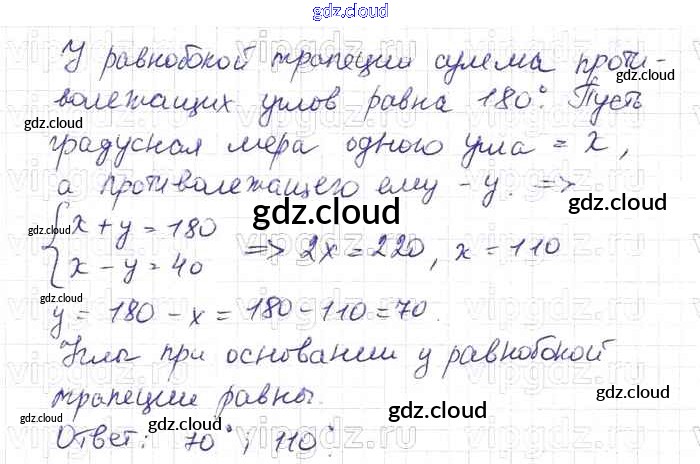 gdz.cloud
У равнобокой трапеции сумма проти-
gdz.cloud
волежащих углов равна 180°. Пусть
gdz.cloud
gdz.cloud
градусная мера одного угла = x,
а противолежащего ему - y. =>
gdz.cloud
{x + y = 180
{x - y = 40 => 2x = 220, x = 110
gdz.cloud
gdz.cloud
y = 180 - x = 180 - 110 = 70.
gdz.cloud
Углы при основании у равнобокой
gdz.cloud
трапеции равны.
gdz.cloud
gdz.cloud
gdz.cloud
Ответ: 70°; 110°.
gdz.cloud